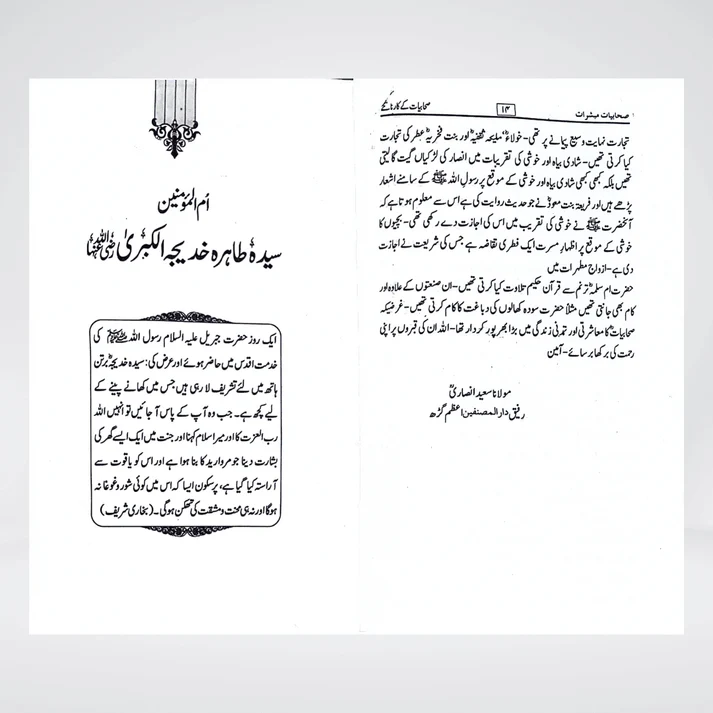 صحابیات مبشرات
۱۴
صحابیات کے کارنامے
تجارت نہایت وسیع پیمانے پر تھی۔ خولاءؓ ملیکہ ثقفیہؓ اور بنت فخریہؓ عطر کی تجارت
کیا کرتی تھیں۔ شادی بیاہ اور خوشی کی تقریبات میں انصار کی لڑکیاں گیت گاتی
تھیں بلکہ کبھی کبھی شادی بیاہ اور خوشی کے موقع پر رسول اللہ ﷺ کے سامنے اشعار
پڑھے ہیں اور فریعہ بنت معوذؓ نے جو حدیث روایت کی ہے اس سے معلوم ہوتا ہے کہ
آنحضرت ﷺ نے خوشی کی تقریب میں اس کی اجازت دے رکھی تھی۔ بچیوں کا
خوشی کے موقع پر اظہارِ مسرت ایک فطری تقاضہ ہے جس کی شریعت نے اجازت
دی ہے۔ ازدواج مطہرات میں
حضرت ام سلمہؓ ترنم سے قرآن حکیم تلاوت کیا کرتی تھیں۔ ان صنعتوں کے علاوہ اور
کام بھی جانتی تھیں مثلاً حضرت سودہ کھالوں کی دباغت کا کام کرتی تھیں۔ غرضیکہ
صحابیاتؓ کا معاشرتی اور تمدنی زندگی میں بڑا بھرپور کردار تھا۔ اللہ ان کی قبروں پر اپنی
رحمت کی برکھا برسائے۔ آمین
مولانا سعید انصاریؒ
رفیق دار المصنفین اعظم گڑھ
اُم المؤمنین
سیدہ طاہرہ خدیجہ الکبریٰ رضی اللہ عنہا
ایک روز حضرت جبریل علیہ السلام رسول اللہ ﷺ کی
خدمت اقدس میں حاضر ہوئے اور عرض کی: سیدہ خدیجہؓ برتن
ہاتھ میں لئے تشریف لا رہی ہیں جس میں کھانے پینے کے
لیے کچھ ہے۔ جب وہ آپ کے پاس آ جائیں تو انہیں اللہ
رب العزت کا اور میرا سلام کہنا اور جنت میں ایک ایسے گھر کی
بشارت دینا جو مروارید کا بنا ہوا ہے اور اس کو یاقوت سے
آراستہ کیا گیا ہے، پرسکون ایسا کہ اس میں کوئی شور و غوغا نہ
ہو گا اور نہ ہی محنت و مشقت کی تھکن ہوگی۔ (بخاری شریف)